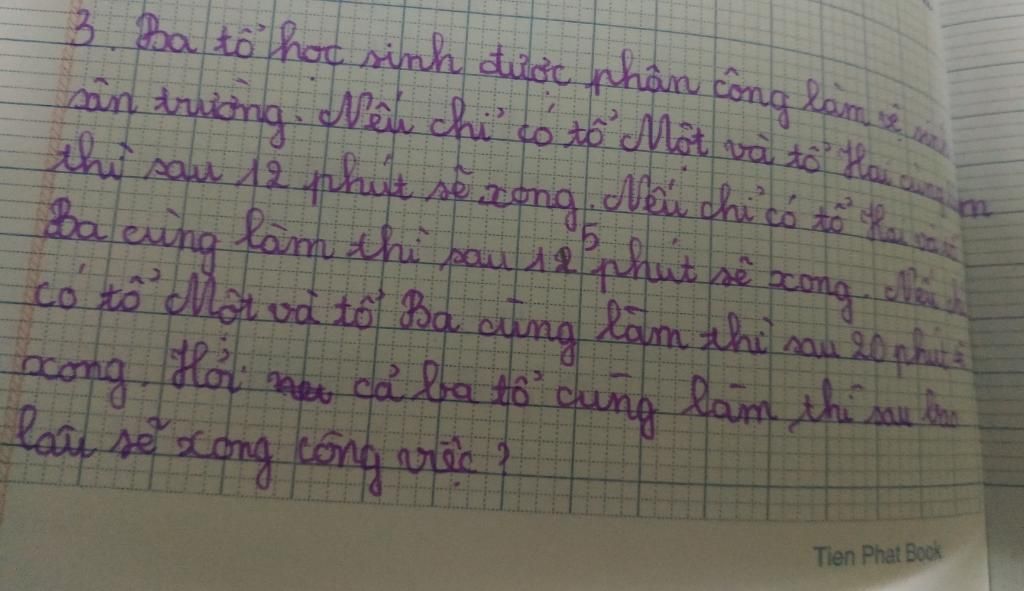 3. Ba tổ học sinh được phân công làm vệ sinh
sân trường. Nếu chỉ có tổ Một và tổ Hai cùng làm
thì sau 12 phút sẽ xong. Nếu chỉ có tổ Hai và tổ
Ba cùng làm thì sau 15 phút sẽ xong. Nếu
có tổ Một và tổ Ba cùng làm thì sau 20 phút
xong. Hỏi cả ba tổ cùng làm thì sau bao
lâu sẽ xong công việc?
Tien Phat Book